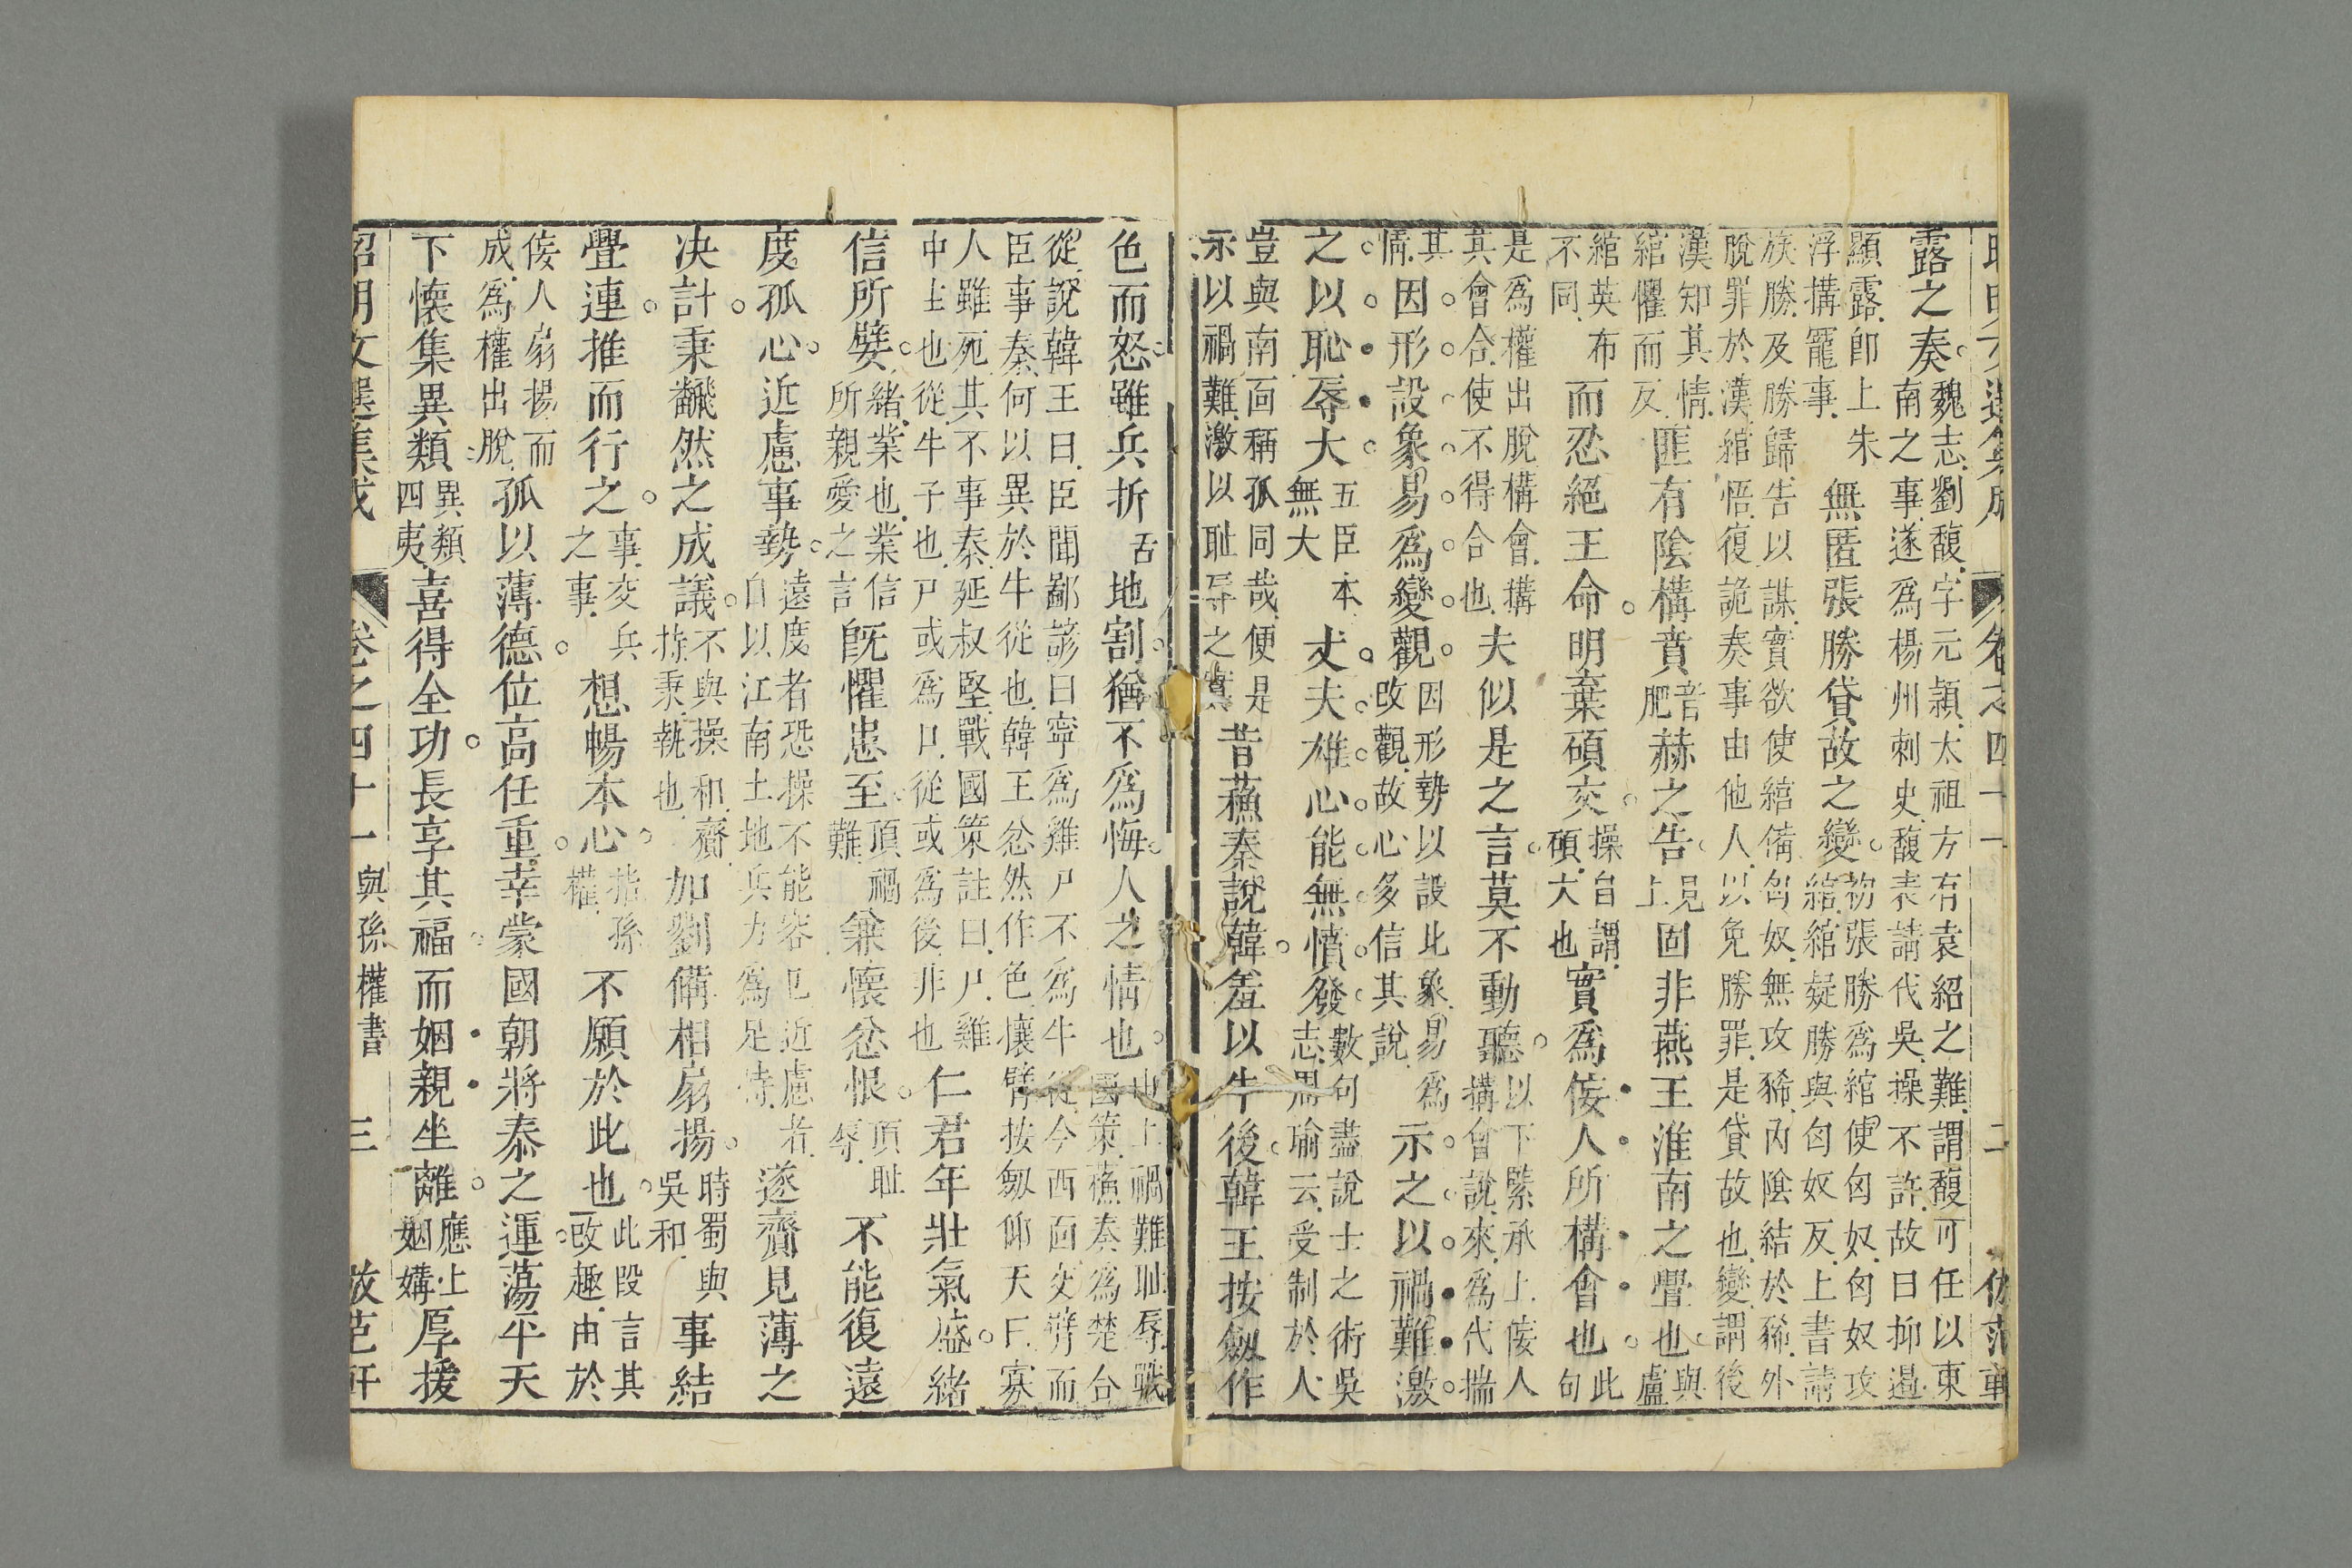 露之奏。魏志劉馥字元穎太祖方有袁紹之難謂馥可任以東
南之事遂爲楊州刺史馥表請代吳操不許故曰抑遏
顯露卽上朱
浮搆寵事
無匿張勝貸故之變。初張勝爲綰使匈奴匈奴攻
綰綰疑勝與匈奴反上書請
族勝及勝歸告以謀實欲使綰備匈奴無攻豨內陰結於豨外
脫罪於漢綰悟復詭奏事由他人以免勝罪是貸故也變謂後
漢知其情
綰懼而反
匪有陰構賁音肥赫之告。見上固非燕王淮南之舋也。與盧
綰英布
不同
而忍絕王命。明棄碩交。操自謂
碩大也
實爲佞人所構會也。此句
是爲權出脫構會構
其會合使不得合也
夫似是之言。莫不動聽。以下緊承上佞人
搆會說來爲代揣
其情
因形設象。易爲變觀。因形勢以設此象易爲
改觀故心多信其說
示之以禍難激
之以恥辱大五臣本
無大
丈夫雄心能無憤發。數句盡說士之術吳
志周瑜云受制於人
豈與南面稱孤同哉便是
示以禍難激以耻辱之實
昔蘓秦說韓。羞以牛後。韓王按劔作
色而怒。雖兵折舌地割。猶不爲悔。人之情也。也上禍難耻辱戰
國策蘓秦爲楚合
從說韓王曰臣聞鄙諺曰寧爲雞尸不爲牛從今西面交臂而
臣事秦何以異於牛從也韓王忿然作色攘臂按劔仰天曰寡
人雖死其不事秦延叔堅戰國策註曰尸雞
中主也從牛子也尸或爲口從或爲後非也
仁君年壯氣盛。緒
信所嬖。緒業也業信
所親愛之言
旣懼患至。頂禍
難
兼懷忿恨。頂耻
辱
不能復遠
度孤心。近慮事勢。遠度者恐操不能容己近慮者
自以江南土地兵力爲足恃
遂齎見薄之
决計。秉翻然之成議。不與操和齎
持秉執也
加劉備相扇揚。時蜀與
吳和
事結
舋連。推而行之。事交兵
之事
想暢本心。指孫
權
不願於此也。此段言其
改趣由於
佞人扇揚而
成爲權出脫
孤以薄德。位高任重。幸蒙國朝將泰之運。蕩平天
下懷集異類異類
四夷
喜得全功。長享其福。而姻親坐離。應上
姻媾
厚援
昭明文選集成 卷之四十一 與孫權書 三